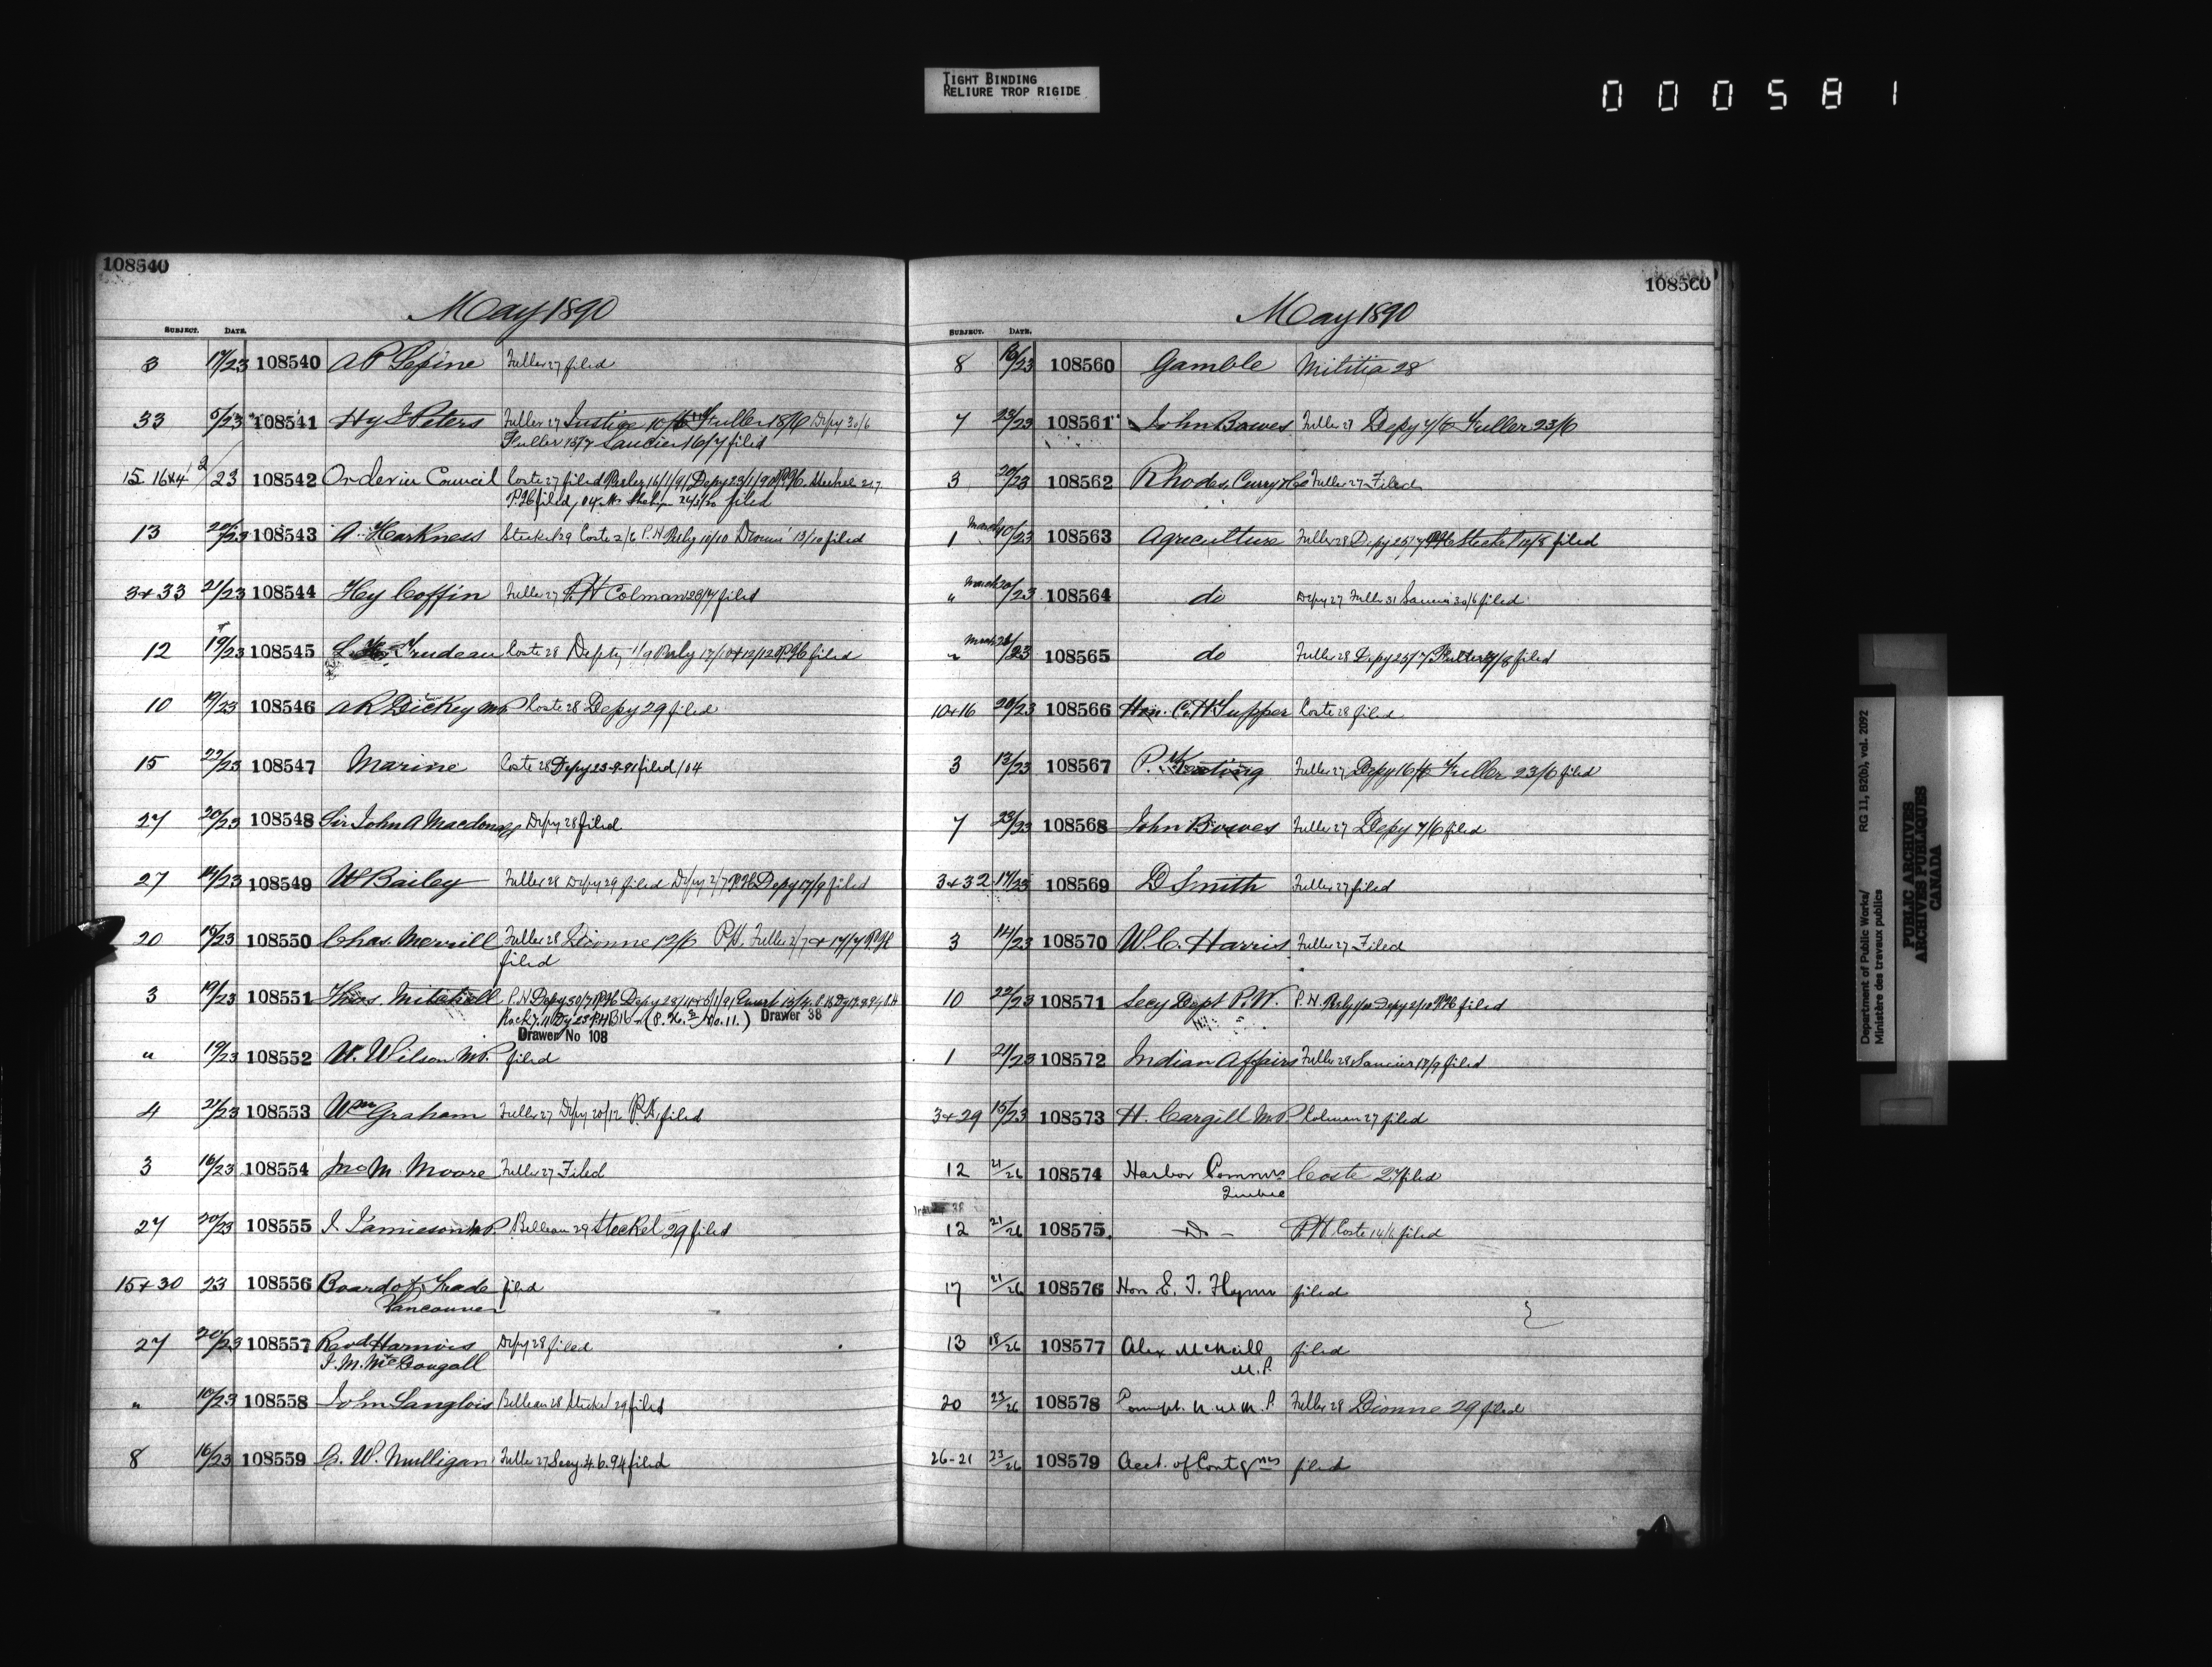 TIGHT BINDING
RELIURE TROP RIGIDE
000581
108540
May 1890
SUBJECT. DATE.
3 17/23 108540 A P Lepine Fuller 27 filed
33 5/23 108541 Hy J Peters Fuller 27 Justice Fuller 18/6 Depy 30/6
Fuller 15/7 Saucier 16/7 filed
15 16+4 2/23 108542 Order in Council Coste 27 filed Perley 16/1/91 Depy 23/1/90 P.H. Steckel
P.H. filed filed
13 20/23 108543 A. Harkness Steckel 29 Coste 2/6 P.H Perley 10/10 13/10 filed
3+33 21/23 108544 Hy Coffin Fuller 27 P.H Colman 23/7 filed
12 19/23 108545 Trudeau Coste 28 Depty 1/9 Perley 12/12 P.H. filed
10 19/23 108546 A R Dickey M.P. Coste 28 Depy 29 filed
15 22/23 108547 Marine Coste 28 Depy 23-9-91 filed / 04
27 20/23 108548 Sir John A Macdonald Depy 28 filed
27 14/23 108549 W Bailey Fuller 28 Depy 29 filed Depy 2/7 P.H. Depy 17/9 filed
20 15/23 108550 Chas. Merrill Fuller 28 Dionne 12/6 P.H. Fuller 2/7 + 17/7 P.H.
filed
3 19/23 108551 Thos. Mitchell P.H Depy 30/7 P.H.
Drawer 38
Drawer No 108
" 19/23 108552 W. Wilson M.P. filed
4 21/23 108553 Wm Graham Fuller 27 Depy 20/12 P.H. filed
3 16/23 108554 Jno M. Moore Fuller 27 Filed
27 20/23 108555 J. Jamieson M.P. Belleau 29 Steckel 29 filed
15+30 23 108556 Board of Trade filed
Vancouver
27 20/23 108557 Revd Harnois Depy 28 filed
J. M. McDougall
" 10/23 108558 John Langlois Belleau 28 Steckel 29 filed
8 16/23 108559 B. W. Mulligan Fuller 27 Secy. 4.6.94 filed
108560
May 1890
SUBJECT. DATE.
8 16/23 108560 Gamble Militia 28
7 23/23 108561 John Bowes Fuller 27 Depy 4/6 Fuller 23/6
3 20/23 108562 Rhodes, Curry & Co Fuller 27 Filed
1 March 10/23 108563 Agriculture Fuller 28 Depy 25/7 P.H. Steckel 12/8 filed
" March 20/23 108564 do Depy 27 Fuller 31 Saucier 30/6 filed
" March 28/23 108565 do Fuller 28 Depy 25/7 filed
10+16 20/23 108566 Hon. C. H Tupper Coste 28 filed
3 13/23 108567 P. Keating Fuller 27 Depy 16/6 Fuller 23/6 filed
7 23/23 108568 John Bowes Fuller 27 Depy 7/6 filed
3+32 17/23 108569 D Smith Fuller 27 filed
3 14/23 108570 W. C. Harris Fuller 27 Filed
10 22/23 108571 Secy Dept P.W. P.H. Perley Depy 2/10 P.H. filed
1 21/23 108572 Indian Affairs Fuller 28 Saucier 17/9 filed
3+29 15/23 108573 H. Cargill M.P. Colman 27 filed
12 21/26 108574 Harbor Commrs Coste 27 filed
Quebec
12 21/26 108575 - Do - P.H. Coste 14/6 filed
17 21/26 108576 Hon E. J. Flynn filed
13 18/26 108577 Alex McNeill filed
M.P.
20 23/26 108578 Compt. N. W. M. P. Fuller 28 Dionne 29 filed
26-21 23/26 108579 Acct. of Contgncs filed
Department of Public Works/
Ministère des travaux publics
RG 11, B2(b), vol. 2092
PUBLIC ARCHIVES
ARCHIVES PUBLIQUES
CANADA